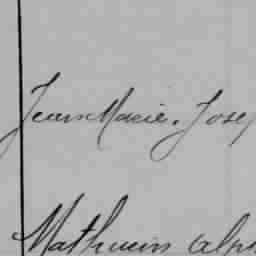 Jean Marie. Josep
Mathurin alph